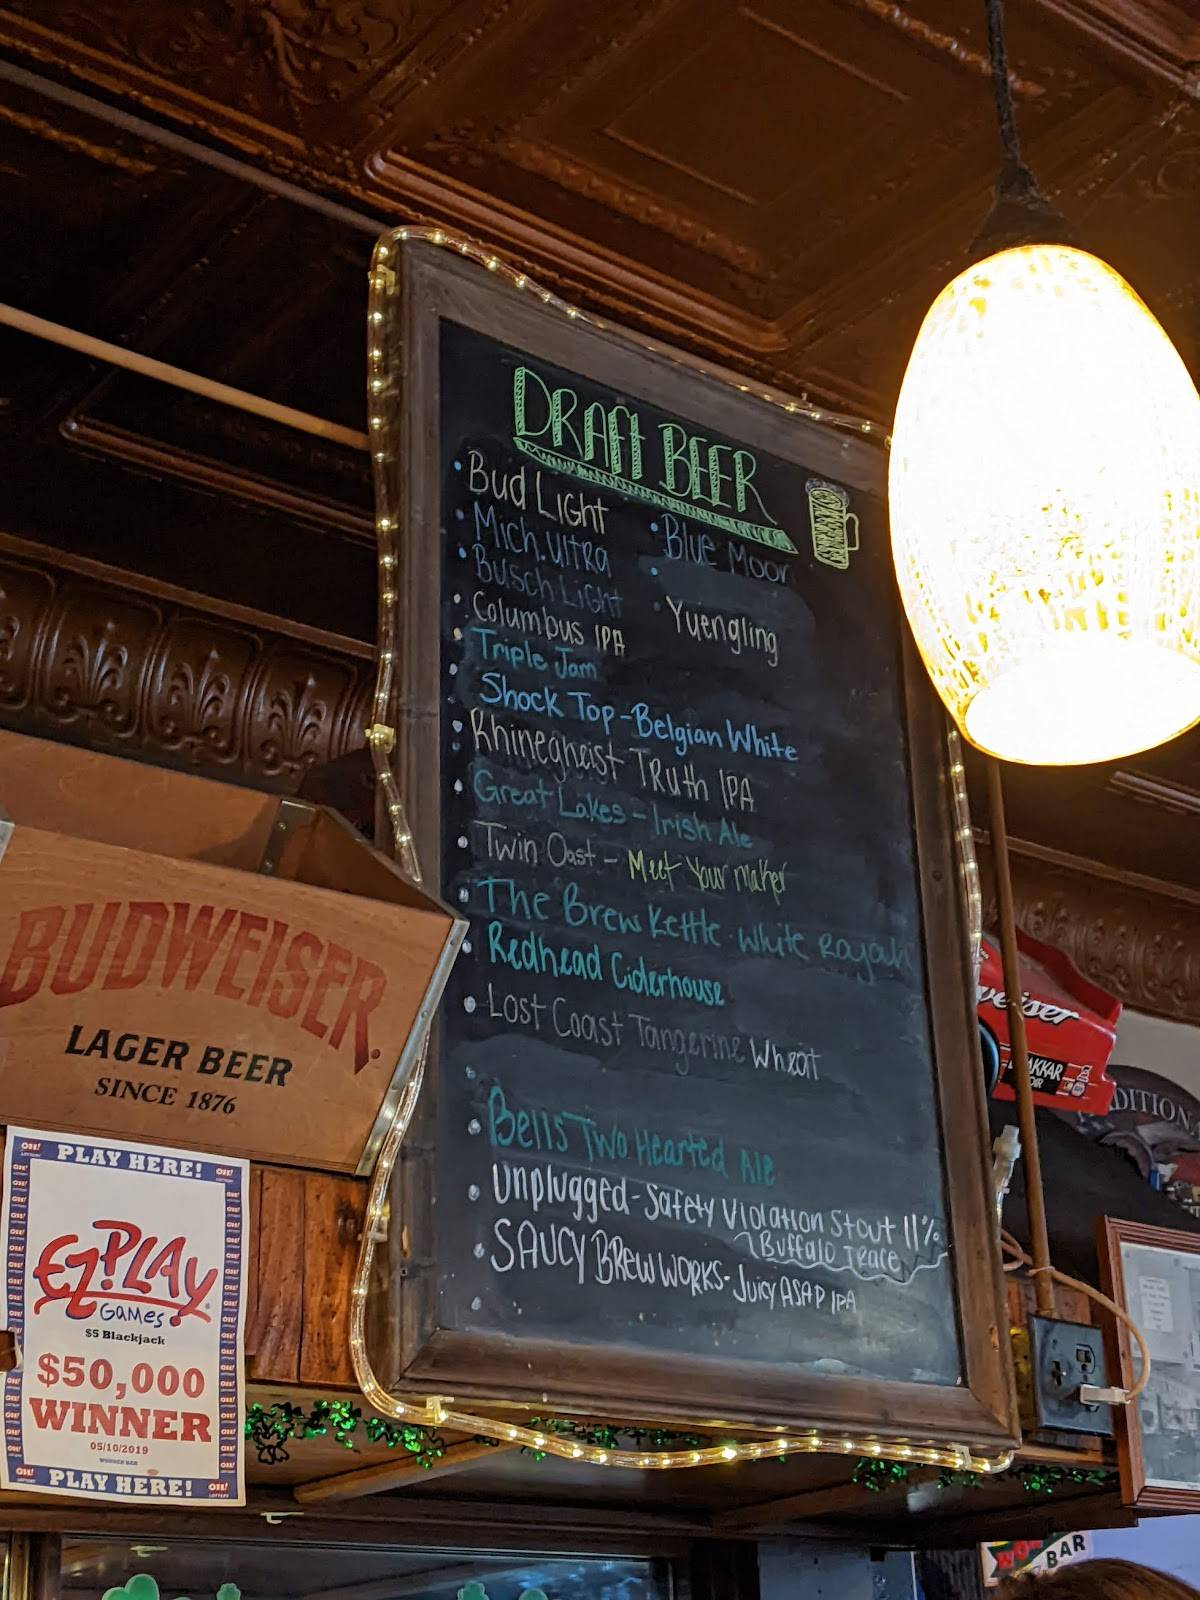 DRAFt BEER
Bud Light
Mich. Ultra
Blue Moon
Busch Light
Columbus IPA
Yuengling
Triple Jam
Shock Top - Belgian White
Rhinegheist TRuth IPA
Great Lakes - Irish Ale
Twin Oast - Meet Your maker
The Brew Kettle - White Rajah
Redhead Ciderhouse
Lost Coast Tangerine Wheat
Bells Two Hearted Ale
Unplugged - Safety Violation Stout 11%
Buffalo Trace
SAUCY BREW WORKS - Juicy ASAP IPA
BUDWEISER.
LAGER BEER
SINCE 1876
PLAY HERE!
EZPLAY
GAMES
$5 Blackjack
$50,000
WINNER
05/10/2019
WONDER BAR
PLAY HERE!
weiser
AKKAR
OIR
ADITION
BAR